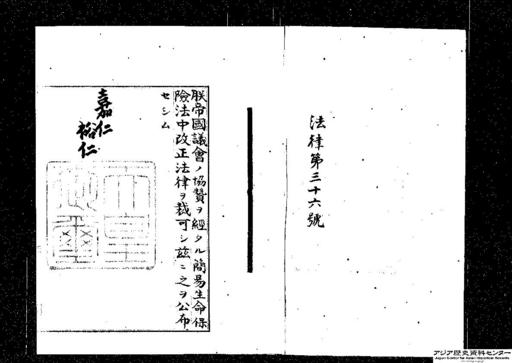 法律第三十六號
朕帝國議會ノ協賛ヲ經タル簡易生命保
險法中改正法律ヲ裁可シ茲ニ之ヲ公布
セシム
嘉仁
裕仁
天皇
御璽
アジア歴史資料センター
Japan Center for Asian Historical Records